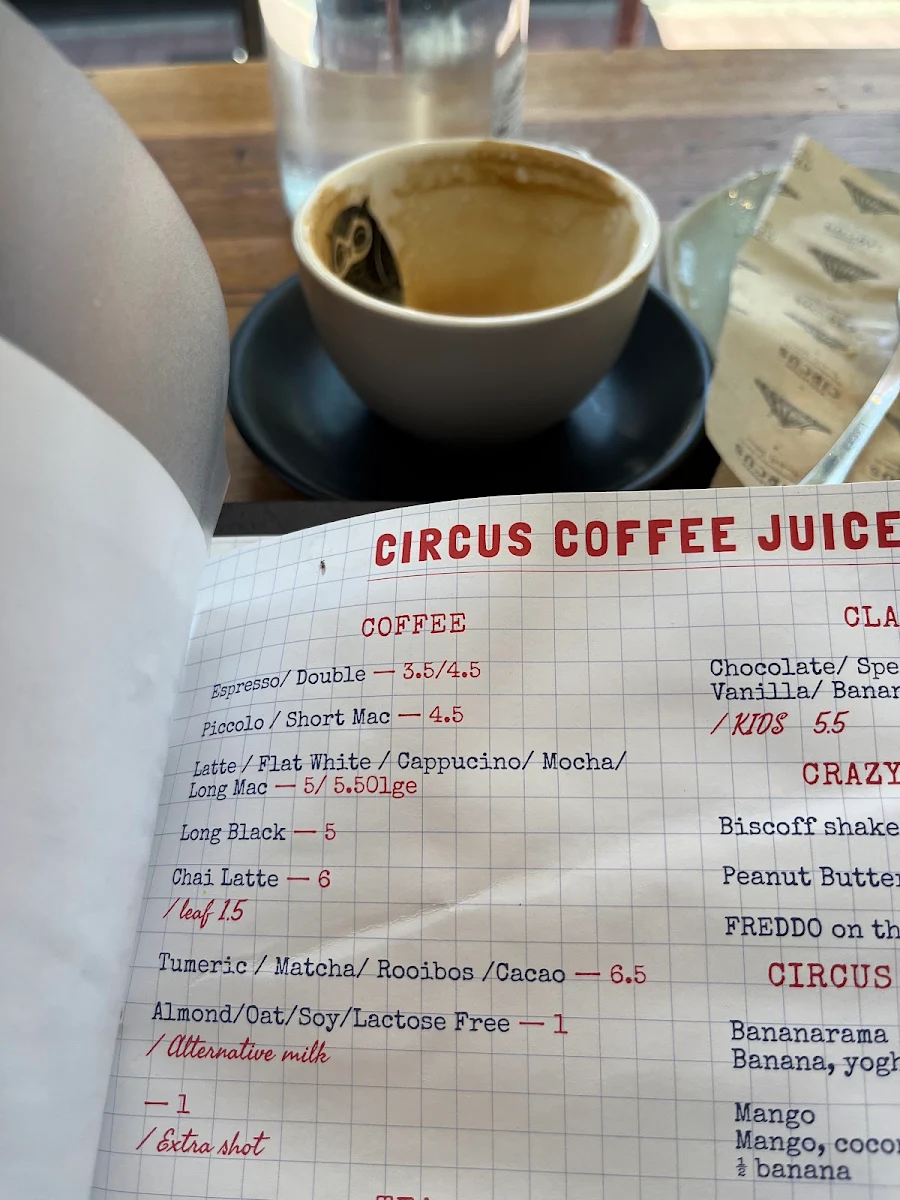 CIRCUS
CIRCUS COFFEE JUICE
COFFEE
Espresso/ Double — 3.5/4.5
Piccolo / Short Mac — 4.5
Latte / Flat White / Cappucino/ Mocha/
Long Mac — 5/ 5.50lge
Long Black — 5
Chai Latte — 6
/ leaf 1.5
Tumeric / Matcha/ Rooibos /Cacao — 6.5
Almond/Oat/Soy/Lactose Free — 1
/ Alternative milk
— 1
/ Extra shot
CLA
Chocolate/ Spe
Vanilla/ Banan
/ KIDS 5.5
CRAZY
Biscoff shake
Peanut Butter
FREDDO on th
CIRCUS
Bananarama
Banana, yogh
Mango
Mango, coco
½ banana